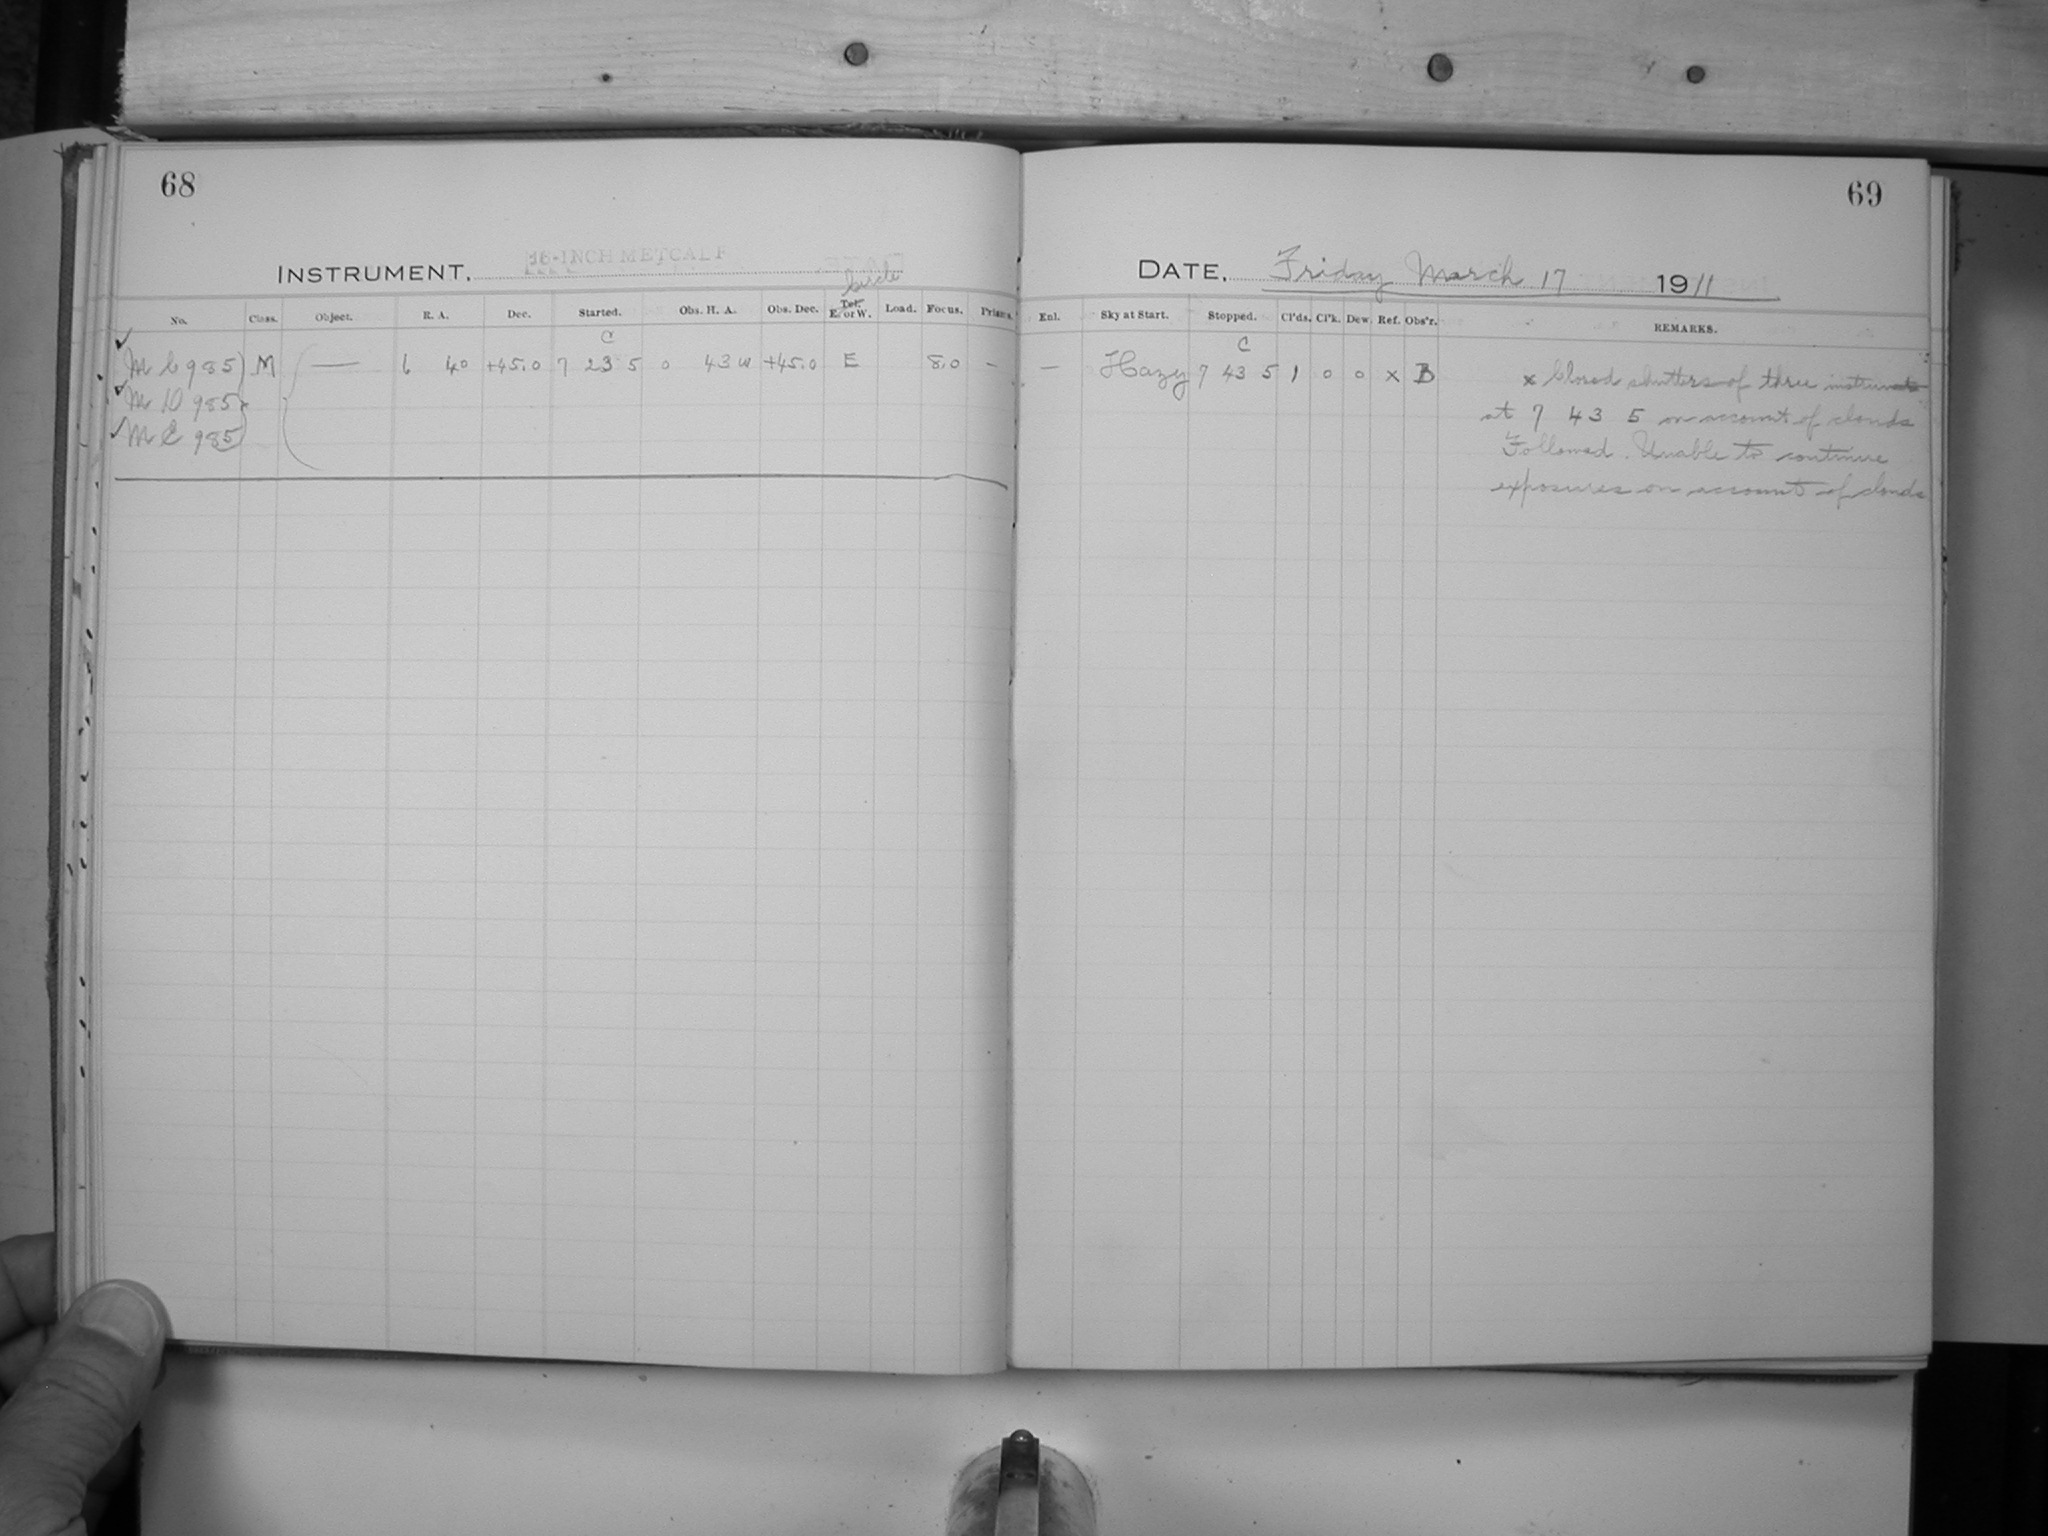 68
INSTRUMENT. 16-INCH METCALF
Circle
No. Class. Object. R. A. Dec. Started. Obs. H. A. Obs. Dec. Tel. E. or W. Load. Focus. Prisms.
C
MC 985 M — 6 40 +45.0 7 23 5 0 43 W +45.0 E 8.0 —
MD 985
ME 985
69
DATE. Friday March 17 1911
Enl. Sky at Start. Stopped. Cl'ds. Cl'k. Dew. Ref. Obs'r. REMARKS.
C
— Hazy 7 43 5 1 0 0 x B x Closed shutters of three instruments
at 7 43 5 on account of clouds
Followed. Unable to continue
exposures on account of clouds